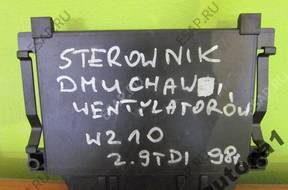 STEROWNIK
DMUCHAWY,
WENTYLATORÓW
W210
2.9TDI 98r